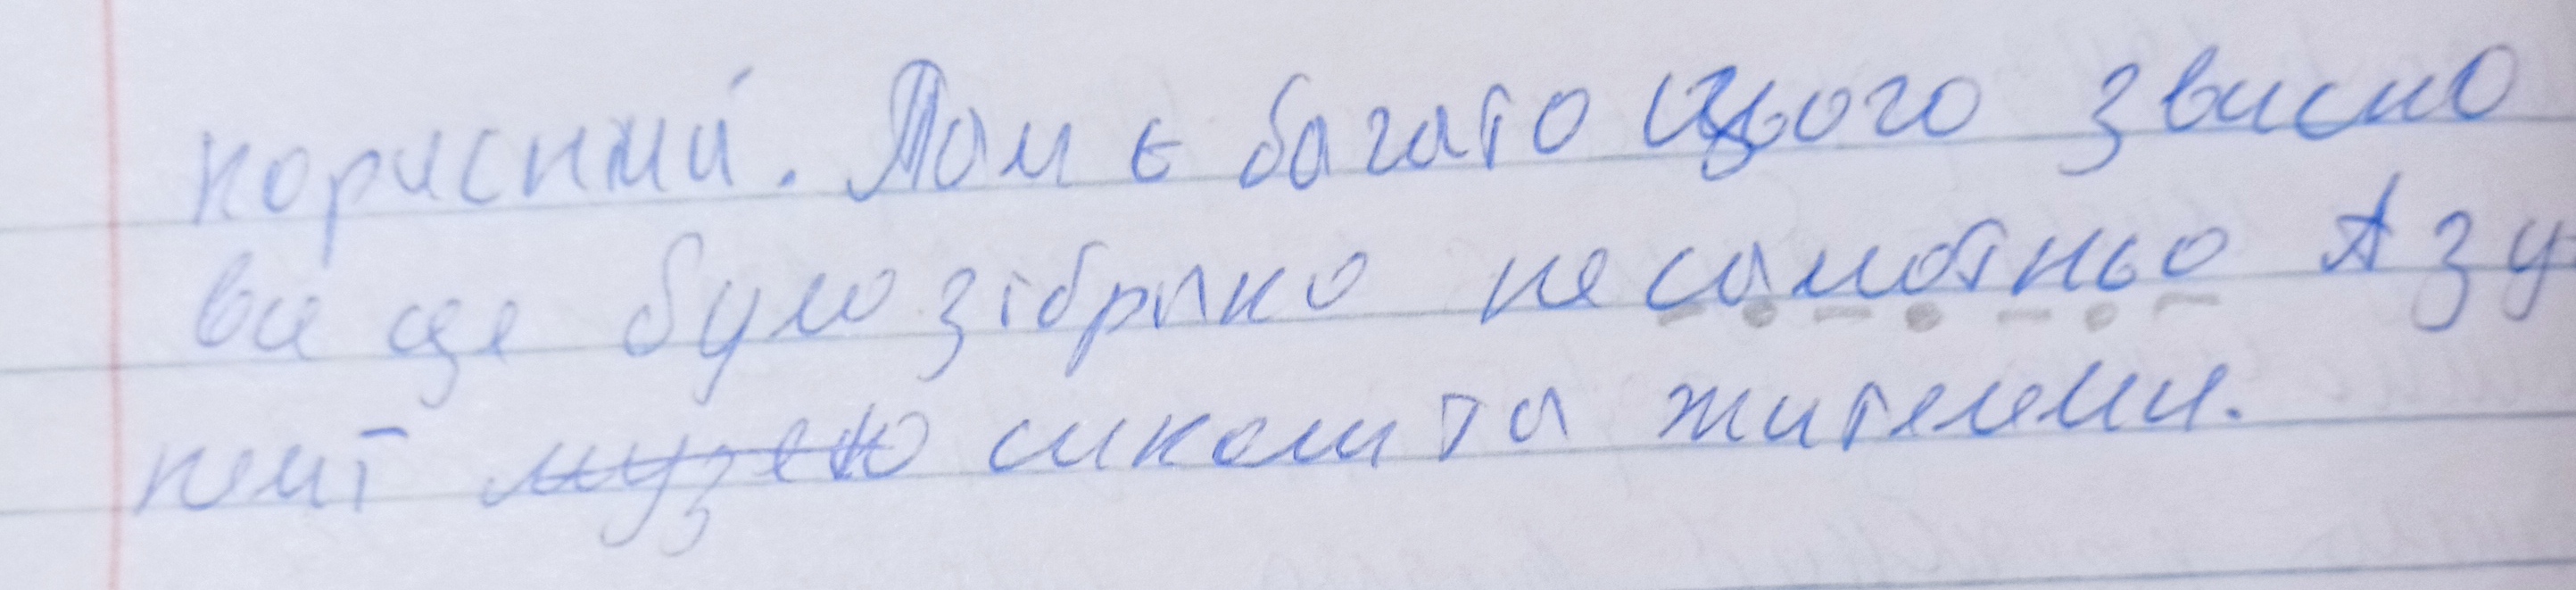 корисний. Там є багато цього звисно
все це було зібрано несамотньо А зу
музею школи та жителями.